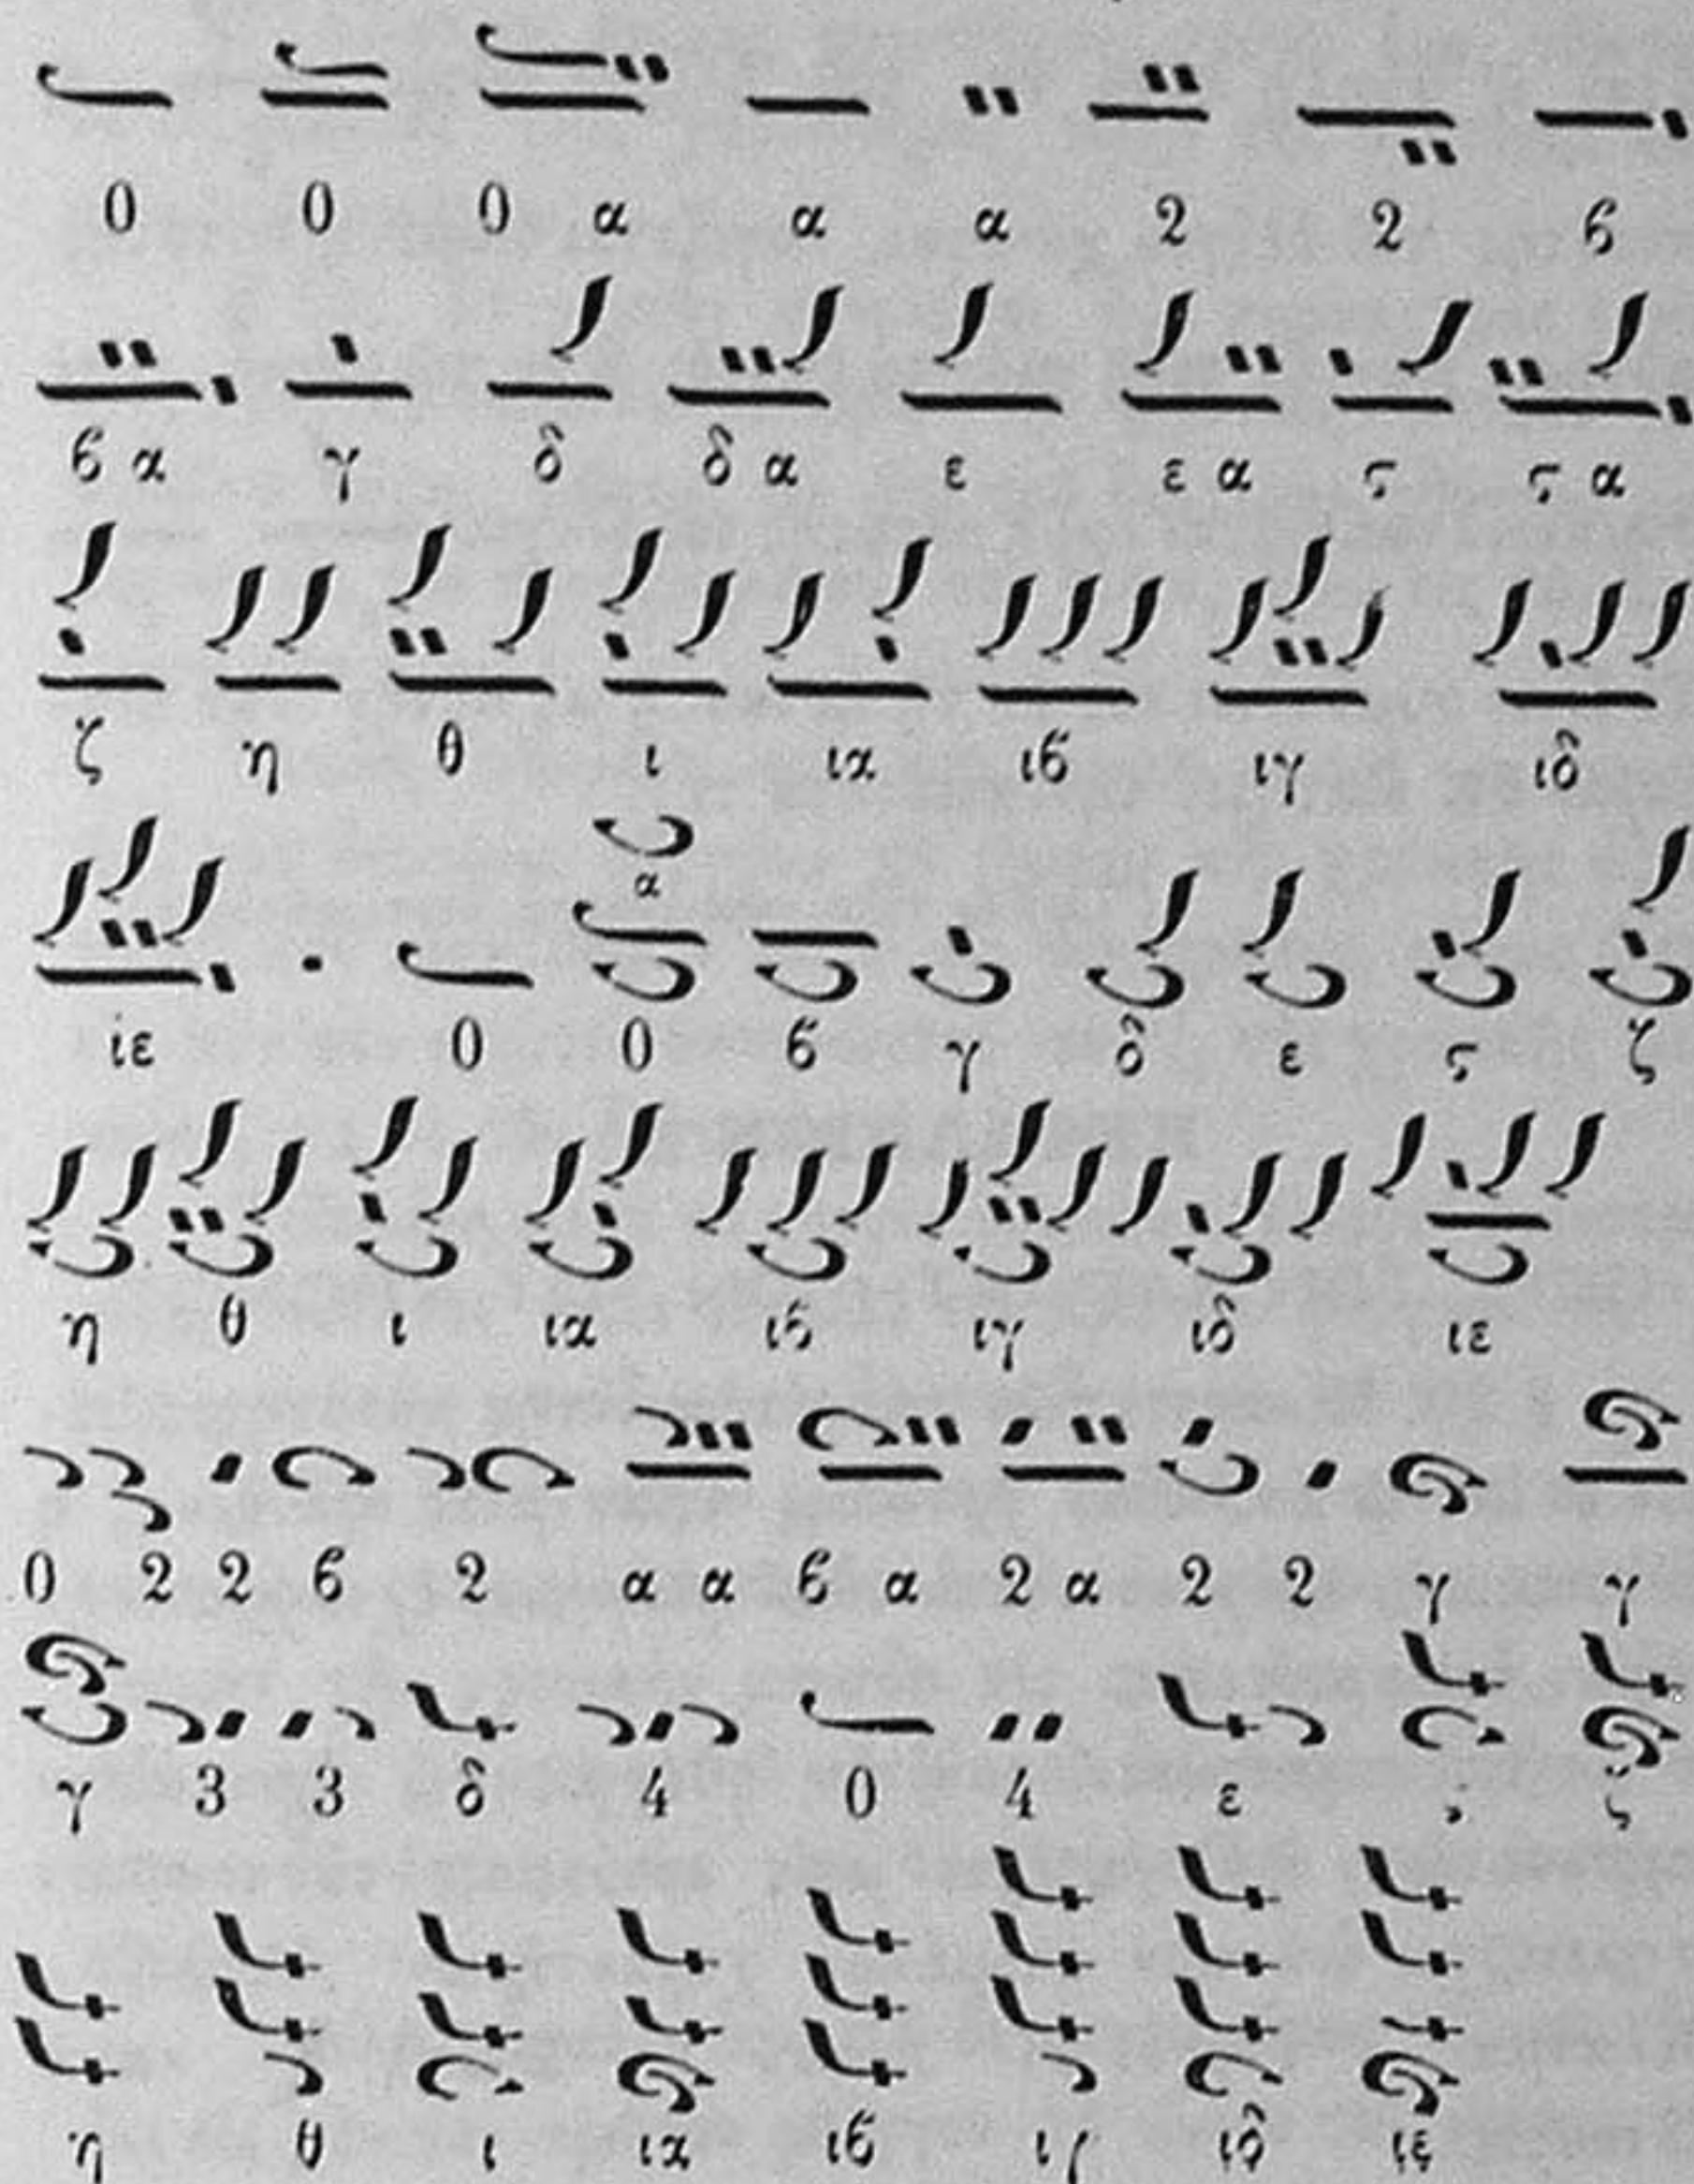 0 0 0 α α α 2 2 ϐ
ϐ α γ δ δ α ε ε α ϛ ϛ α
ζ η θ ι ια ιϐ ιγ ιδ
α
ιε 0 0 ϐ γ δ ε ϛ ζ
η θ ι ια ιϐ ιγ ιδ ιε
0 2 2 ϐ 2 α α ϐ α 2 α 2 2 γ γ
γ 3 3 δ 4 0 4 ε
η θ ι ια ιϐ ιγ ιδ ιε